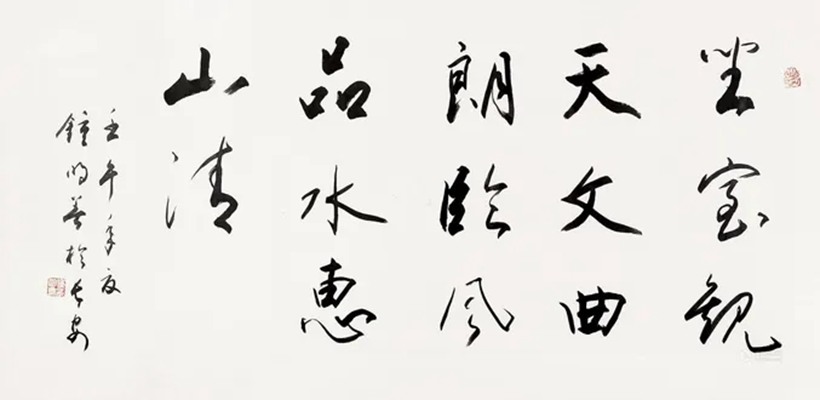 坐室觀
天文曲
朗臨風
品水惠
山清
壬午年夏
鐘明善於長安